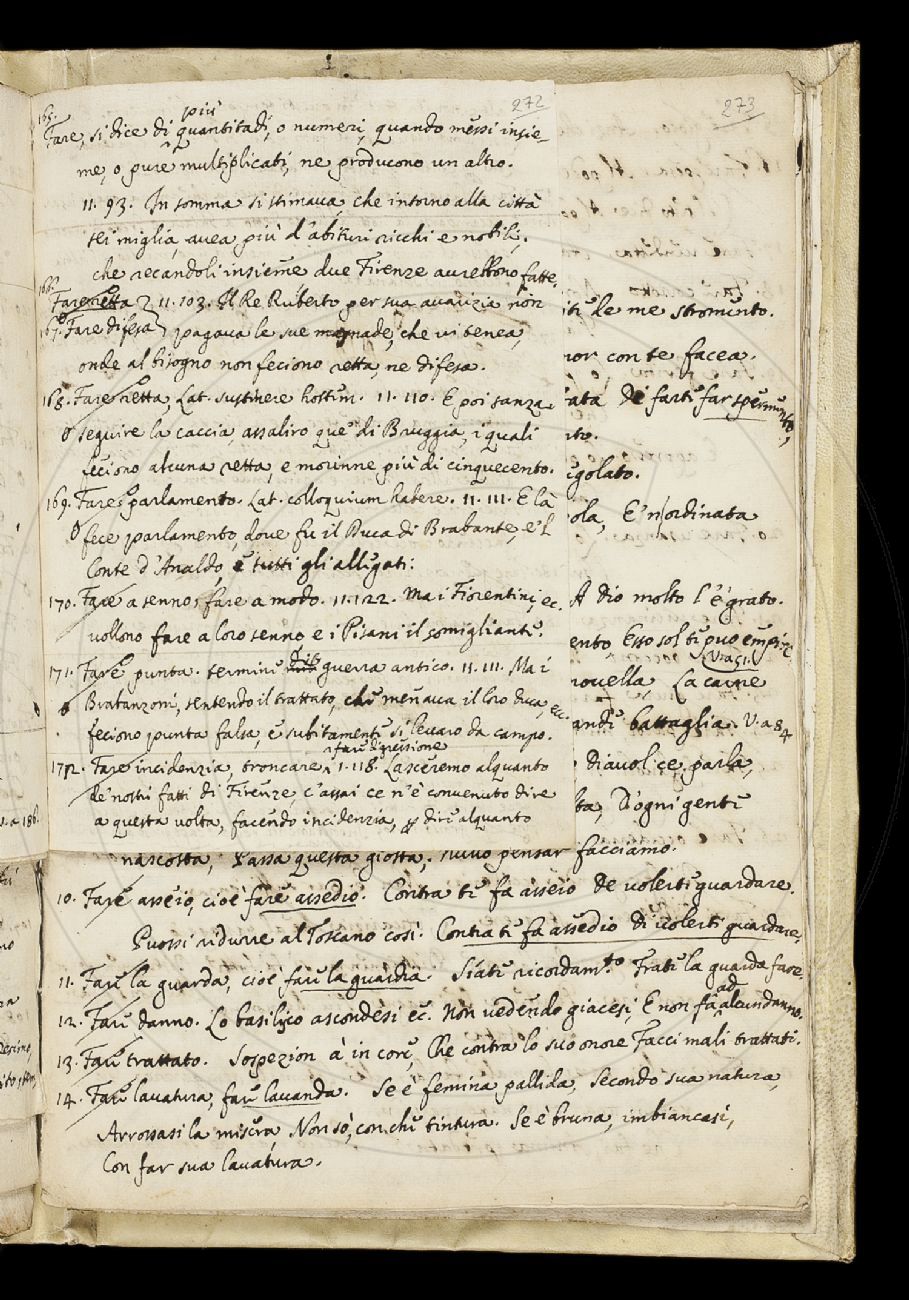 272
165.
Fare, si dice di più quantitadi, o numeri, quando messi insie-
me, o pure multiplicati, ne producono un altro.
11. 93. In somma si stimava, che intorno alla città
sei miglia, avea più d'abituri ricchi e nobili,
che recandoli insieme due Firenze avrebbono fatte.
166. Fare retta 11. 103. Il Re Ruberto per sua avarizia non
167. Fare difesa pagava le sue masnade, che vi tenea,
onde al bisogno non feciono retta, ne difesa.
168. Fare retta, Lat. sustinere hostem. 11. 110. E poi sanza
seguire la caccia, assaliro que' di Bruggia, i quali
feciono alcuna retta, e morinne più di cinquecento.
169. Fare parlamento. Lat. colloquium habere. 11. 111. E là
fece parlamento, dove fu il Duca di Brabante, e 'l
Conte d'Analdo, e tutti gli allegati:
170. Fare a senno, fare a modo. 11. 122. Ma i Fiorentini, ec.
vollono fare a loro senno e i Pisani il somigliante.
171. Fare punta. termine di guerra antico. 11. 111. Ma i
Brabanzoni, sentendo il trattato, che menava il loro duca, ec.
feciono punta falsa, e subitamente si levaro da campo.
172. Fare incidenzia, troncare, fare digressione 1. 118. Lasceremo alquanto
de' nostri fatti di Firenze, c'assai ce n'è convenuto dire
a questa volta, facendo incidenzia, p dire alquanto
273
le me stromento.
con te facea.
De farti far spermento,
E' n'ordinata
A dio molto l'è grato.
Esso sol ti può empire
V. a 51.
novella, La carne
battaglia. V. a 84
Diavol ce parla,
D'ogni gente
nascosta, Passa questa giostra, nuvo pensar facciamo.
10. Fare asseio, cioè fare assedio. Contra te fa asseio De volerti guardare.
Puossi ridurre al Toscano così. Contra te fa assedio di volerti guardare.
11. Fare la guarda, cioè fare la guardia. Siate ricordam.to Frate la guarda fare.
12. Fare danno. Lo basilico ascondesi ec. Non vedendo giacesi, E non fa ad alcun danno.
13. Fare trattato. Sospezion à in core, Che contra lo suo onore Facci mali trattati.
14. Fare lavatura, fare lavanda. Se è femina pallida Secondo sua natura,
Arrossasi la misera, Non sò, con che tintura. Se è bruna, imbiancasi,
Con far sua lavatura.
v. a 186.